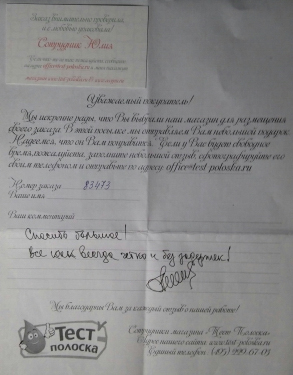 Заказ внимательно проверила,
и с любовью упаковала!
Сотрудник Юлия
Уважаемый покупатель!
Мы искренне рады, что Вы выбрали наш магазин для размещения
своего заказа. В этой посылке мы отправляем Вам небольшой подарок.
Надеемся, что он Вам понравится. Если у Вас будет свободное
время, пожалуйста, заполните небольшой отзыв, сфотографируйте его
своим телефоном и отправьте по адресу
Номер заказа 83473
Ваше имя
Ваш комментарий
Спасибо большое!
Все как всегда четко и без задержек!
Мы благодарны Вам за каждый отзыв о нашей работе!
Тест
полоска
Сотрудники магазина «Тест Полоска»
Адрес нашего сайта: www.test-poloska.ru
Единый телефон: (495)